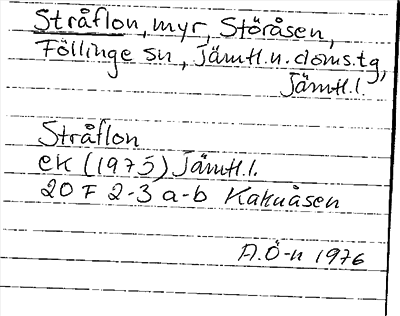 Stråflon, myr, Störåsen,
Föllinge sn, Jämtl.n.doms.tg,
Jämtl.l.
Stråflon
ek (1975) Jämtl.l.
20 F 2-3 a-b Kakuåsen
A.Ö-n 1976